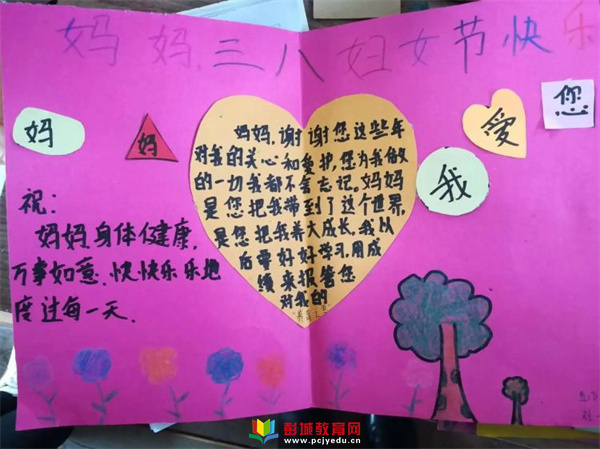 妈妈，三八妇女节快乐
妈
妈
我
爱
您
妈妈，谢谢您这些年
对我的关心和爱护，您为我做
的一切我都不会忘记。妈妈
是您把我带到了这个世界，
是您把我养大成长。我以
后要好好学习，用成
绩来报答您
对我的
养育之
祝：
妈妈身体健康，
万事如意、快快乐乐地
度过每一天．
彭城教育网
www.pcjyedu.cn